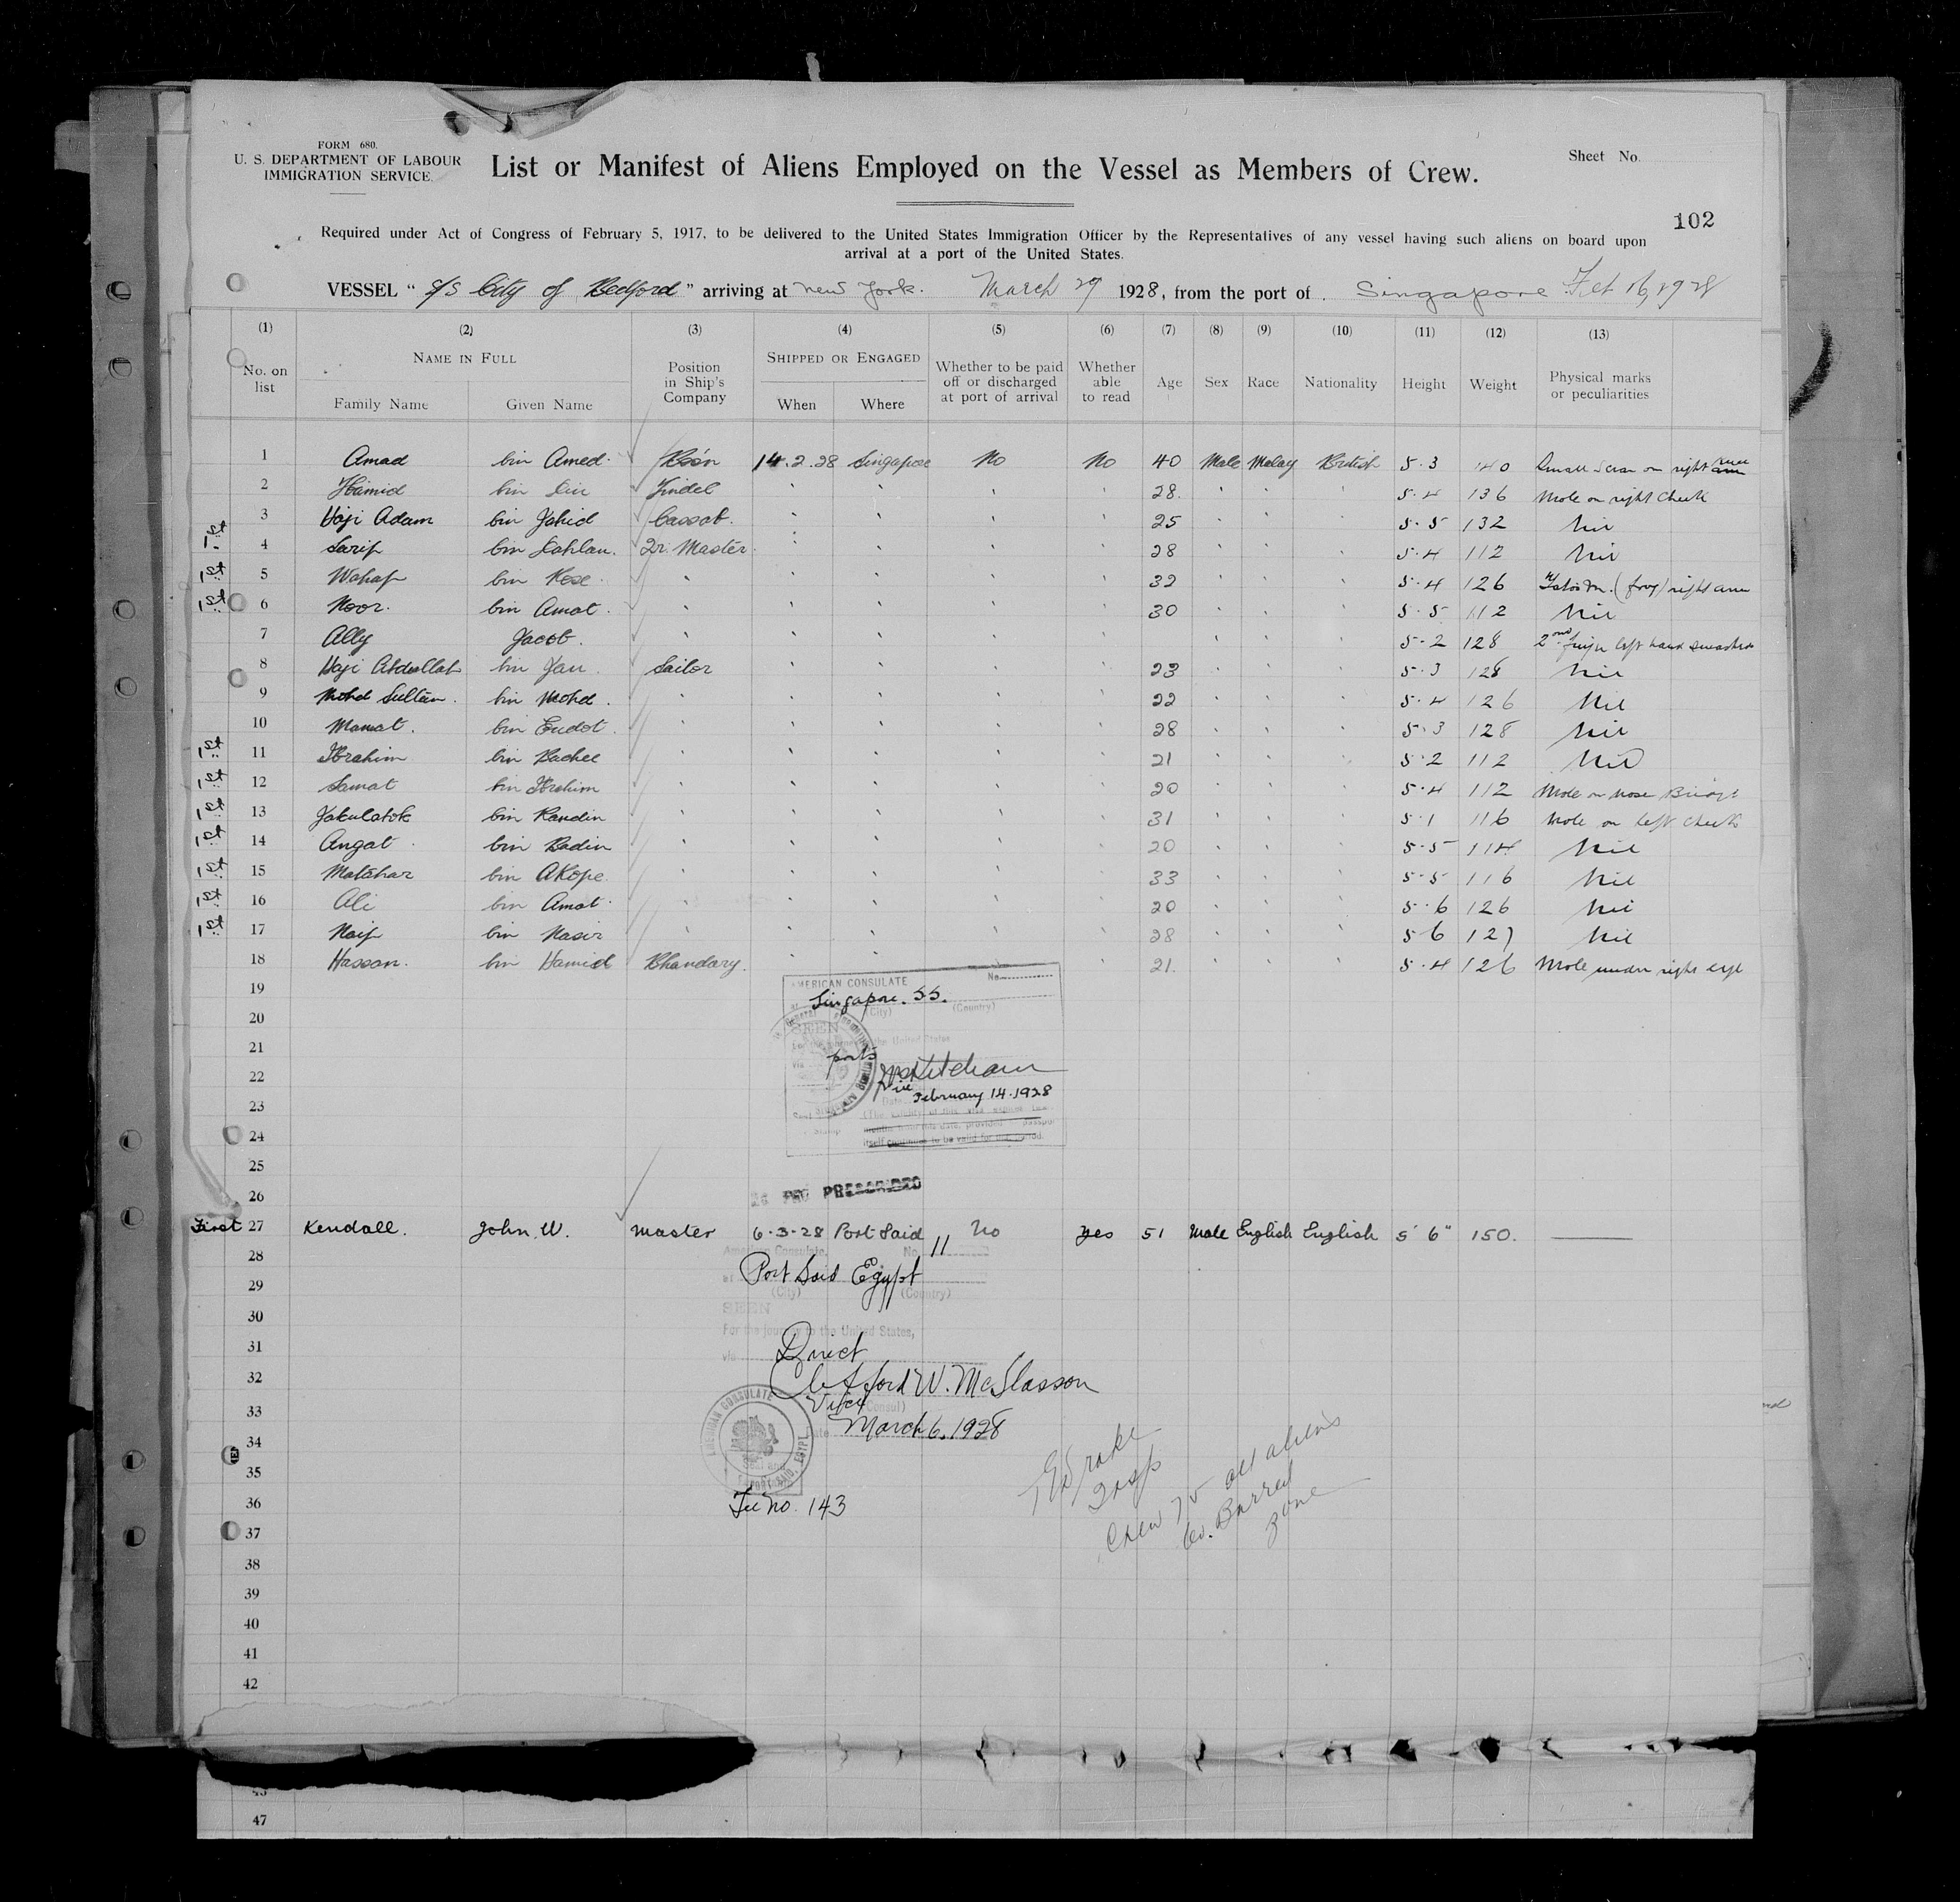 FORM 680.
U. S. DEPARTMENT OF LABOUR
IMMIGRATION SERVICE.
List or Manifest of Aliens Employed on the Vessel as Members of Crew.
Sheet No.
102
Required under Act of Congress of February 5, 1917, to be delivered to the United States Immigration Officer by the Representatives of any vessel having such aliens on board upon
arrival at a port of the United States.
VESSEL " S/S City of Bedford " arriving at New York. March 29 1928, from the port of Singapore Feb 16, 1928
(1) (2) (3) (4) (5) (6) (7) (8) (9) (10) (11) (12) (13)
No. on list NAME IN FULL Family Name Given Name Position in Ship's Company SHIPPED OR ENGAGED When Where Whether to be paid off or discharged at port of arrival Whether able to read Age Sex Race Nationality Height Weight Physical marks or peculiarities
1 Amad bin Amed. 14.2.28 Singapore No No 40 Male Malay British 5.3 140 Small Scar on right
2 Hamid bin Din Tindel 28. 5.4 136 Mole on right Cheek
3 Haji Adam bin Jahid Cassab. 25 5.5 132 Nil
1st 4 Sarip bin Dahlan. Qr. Master 28 5.4 112 Nil
1st 5 Wahap bin Kose 32 5.4 126 right arm
1st 6 Noor. bin Amat. 30 5.5 112 Nil
7 Ally Jacob. 5-2 128 2nd finger left hand smashed
8 Haji Abdullah bin Jan. Sailor 23 5.3 128 Nil
9 Mohd Sultan. bin Mohd. 22 5.4 126 Nil
10 Mamat. bin Endot. 28 5.3 128 Nil
1st 11 Ibrahim bin Bachee 21 5.2 112 Nil
1st 12 Samat bin Ibrahim 20 5.4 112 Mole on nose Bridge
1st 13 Jakulatok bin Randin 31 5.1 116 Mole on left cheek
1st 14 Angat bin Badin 20 5.5 114 Nil
1st 15 Matahar bin Akope. 33 5.5 116 Nil
1st 16 Ali bin Amat. 20 5.6 126 Nil
1st 17 Naip bin Nasir 28 5 6 127 Nil
18 Hassan. bin Hamid Bhandary. 21. 5.4 126 Mole under right eye
19
AMERICAN CONSULATE No.
Singapore. S.S.
(City) (Country)
20
SEEN
21
For the journey to the United States
via ports
22
Vice
23
February 14. 1928
24
itself continues to be valid for that period.
25
26
No FEE PRESCRIBED
First 27 Kendall. John W. Master 6-3-28 Port Said No Yes 51 Male English English 5' 6" 150.
28
American Consulate, No. 11
at Port Said Egypt
29
(City) (Country)
SEEN
30
For the journey to the United States,
31
via Direct
32
Clifford W. McGlasson
Vice (Consul)
33
Date March 6, 1928
34
AMERICAN CONSULATE
PORT SAID, EGYPT.
35
36
Fee No. 143
Drake
Insp
Crew 75 all aliens
Barred
zone
37
38
39
40
41
42
47